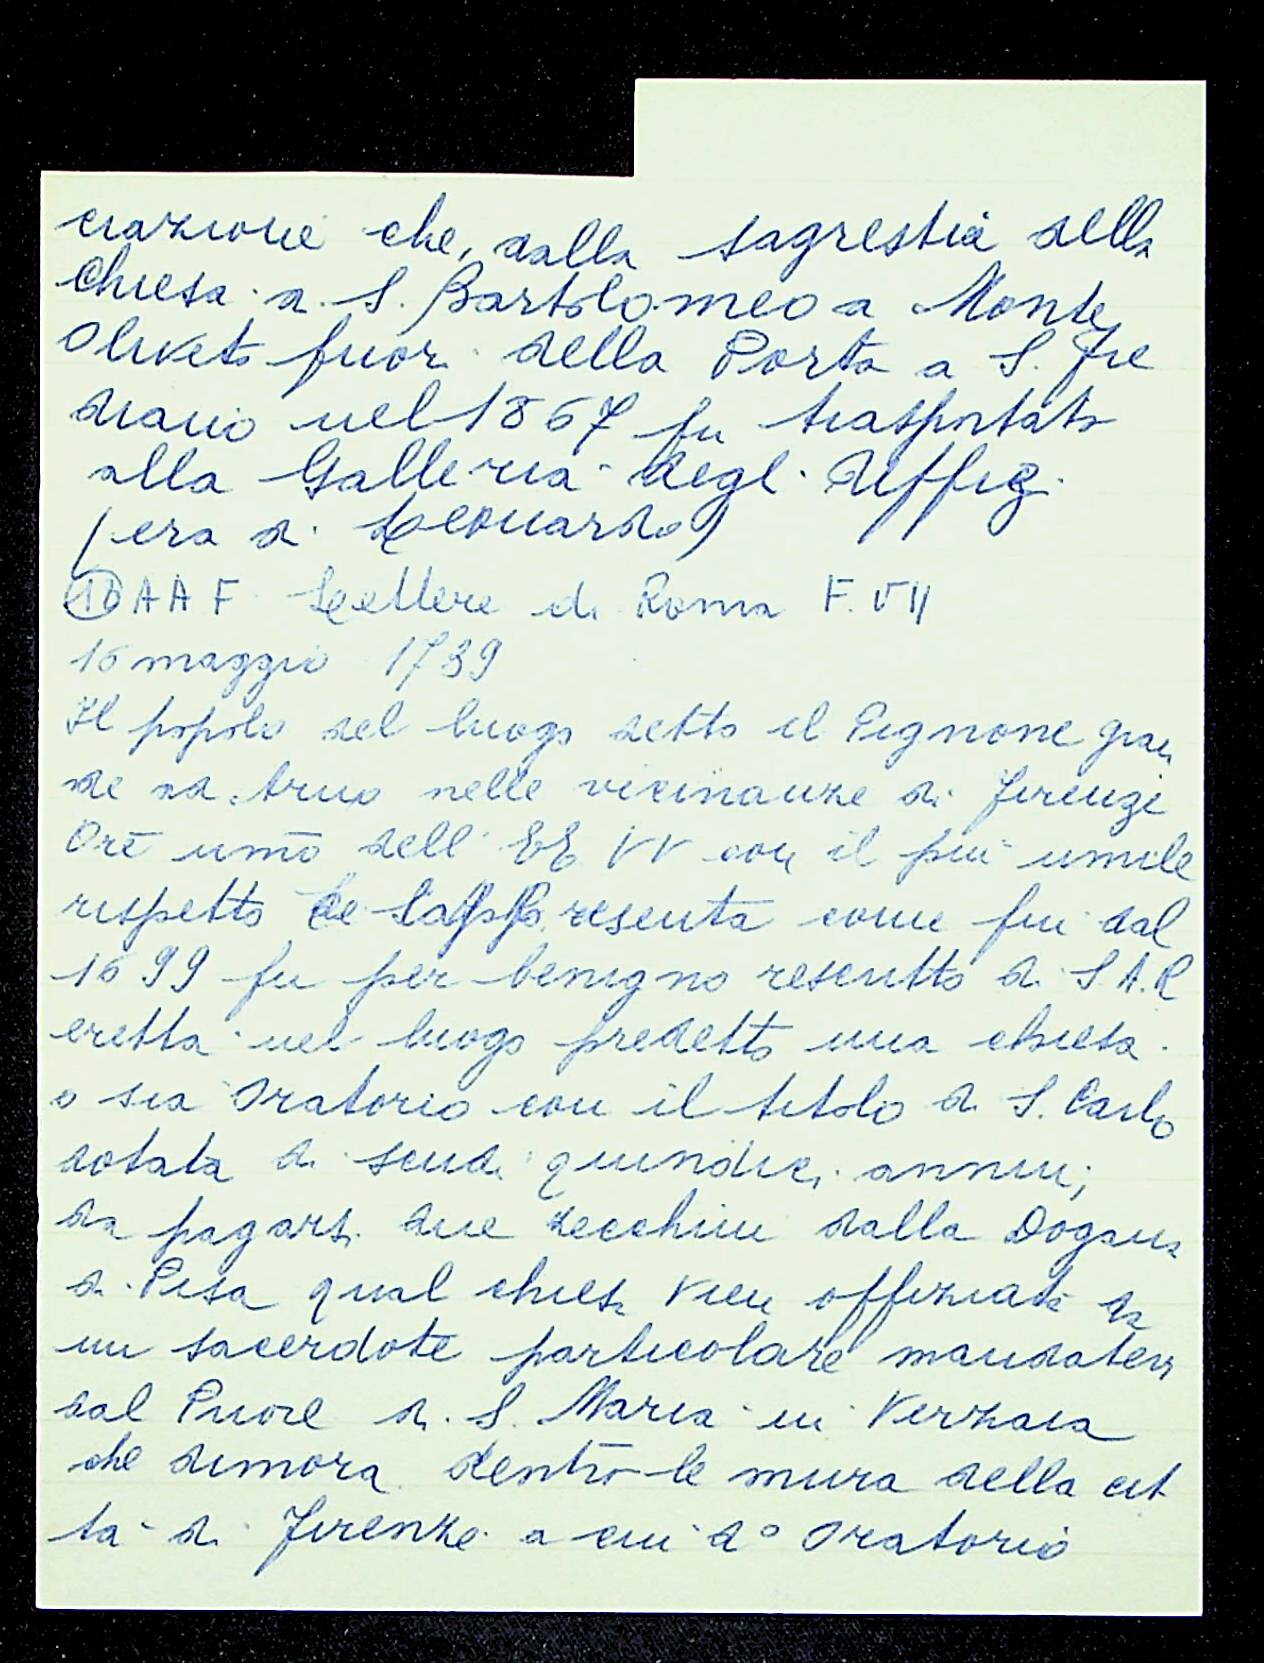 ciazione che, dalla sagrestia della
Chiesa di S. Bartolomeo a Monte
Oliveto fuori della Porta a S. Fre
diano nel 1867 fu trasportato
alla Galleria degli Uffizi
(era di Leonardo)
10 AAF Lettere di Roma F. VII
16 maggio 1739
Il popolo del luogo detto il Pignone gran
de nelle vicinanze di Firenze
Ore umo dell' EE VV con il più umile
rispetto le rappresenta come fin dal
1699 fu per benigno rescritto di S.A.R
eretta nel luogo predetto una chiesa
o sia Oratorio con il titolo di S. Carlo
dotata di scudi quindici annui;
da pagarsi due zecchini dalla Dogana
di Pisa qual chiesa vien offiziata da
un sacerdote particolare mandatevi
dal Priore di S. Maria in Verzaia
che dimora dentro le mura della cit
tà di Firenze a cui do Oratorio